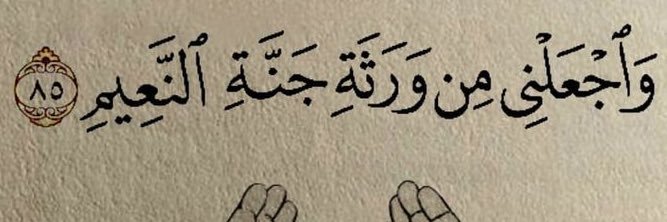 وَٱجْعَلْنِى مِن وَرَثَةِ جَنَّةِ ٱلنَّعِيمِ ٨٥